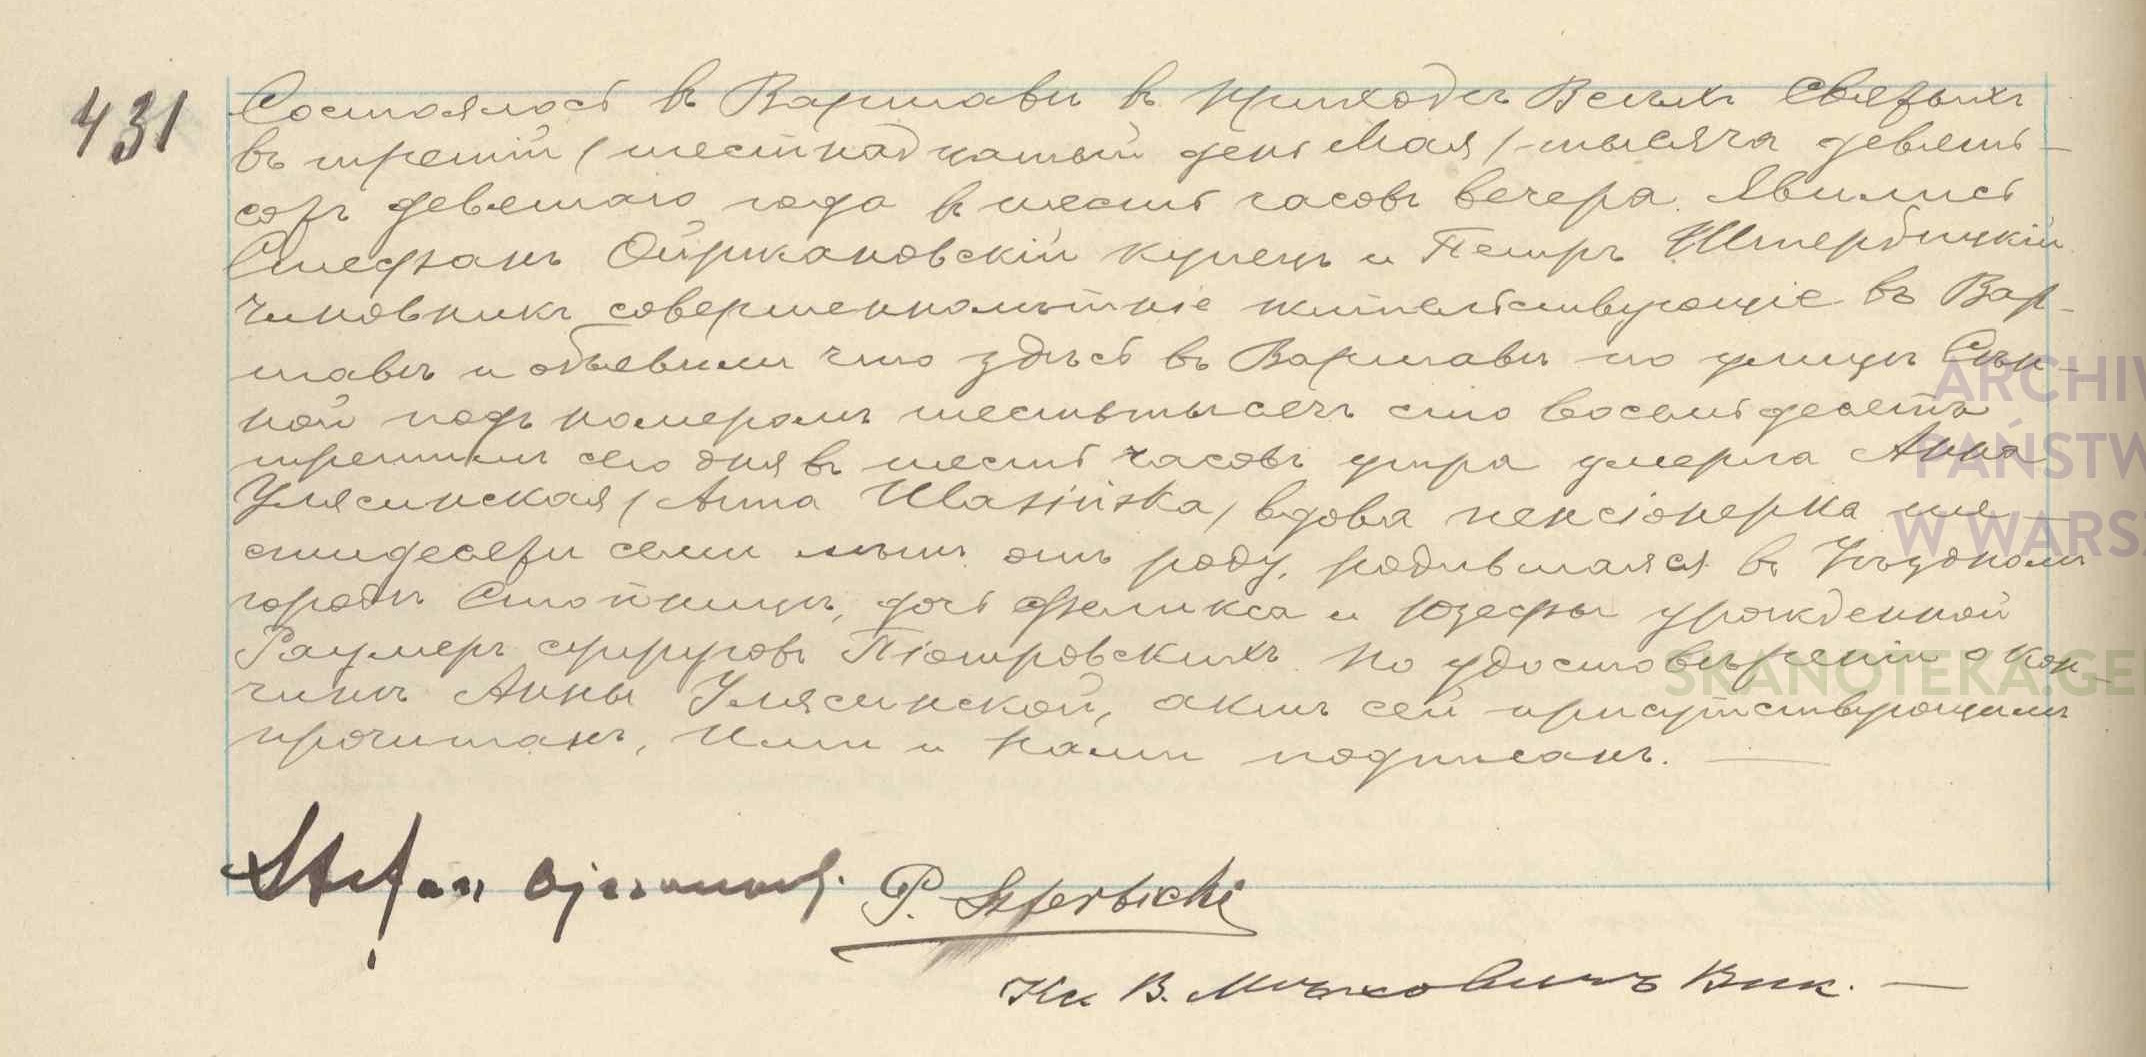 431
Состоялось въ Варшавѣ въ приходѣ Всѣхъ Святыхъ
въ третій /шестнадцатый день Мая/ тысяча девять-
сотъ девятаго года въ шесть часовъ вечера. Явились
Стефанъ Ойржановскій купецъ и Петръ Штербицкій
чиновникъ совершеннолѣтніе жительствующіе въ Вар-
шавѣ и объявили что здѣсь въ Варшавѣ по улицѣ Сѣн-
ной подъ номеромъ шесть тысячъ сто восемьдесятъ
третьимъ сего дня въ шесть часовъ утра умерла Анна
Улясинская /Anna Ulasińska/ вдова пенсіонерка ше-
стидесяти семи лѣтъ отъ роду, родившаяся въ Уѣздномъ
городѣ Стопницѣ, дочь Феликса и Юзефы урожденной
Раумеръ супруговъ Піотровскихъ. По удостовѣреніи о кон-
чинѣ Анны Улясинской, актъ сей присутствующимъ
прочитанъ, Ими и Нами подписанъ.
Stefan
P. Szterbicki
Кс. В. Вик.
ARCHIW
PAŃSTW
W WARS
SKANOTEKA.GE